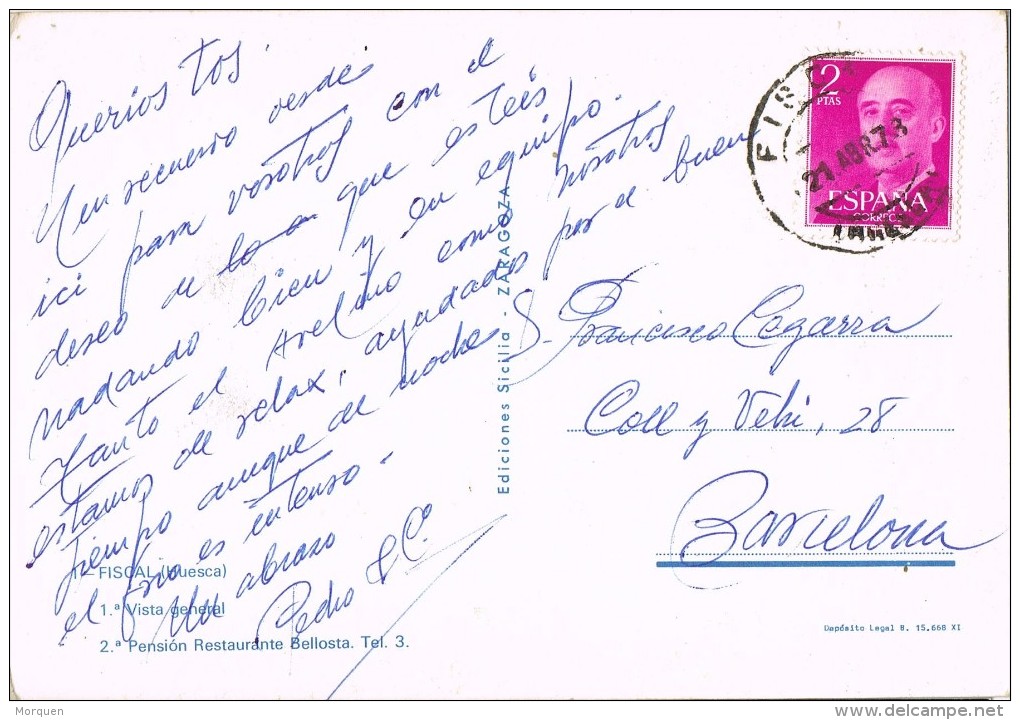 Querios tos:
Un recuerdo desde
ici para vosotros con el
deseo de lo que estéis
nadando bien y en equipo.
Tanto el Avelino como nosotros
estamos de relax, ayudados por el buen
tiempo aunque de noche
el frio es intenso.
Un abrazo
Pedro & Cª
FISCAL (Huesca)
1.ª Vista general
2.ª Pensión Restaurante Bellosta. Tel. 3.
Ediciones Sicilia - ZARAGOZA
2
PTAS
ESPAÑA
CORREOS
FISCAL
21 ABR. 73
S. Francisco Cogarra
Coll y Vehi, 28
Barcelona
Depósito Legal B. 15.668 XI
Morquen
delcampe.net